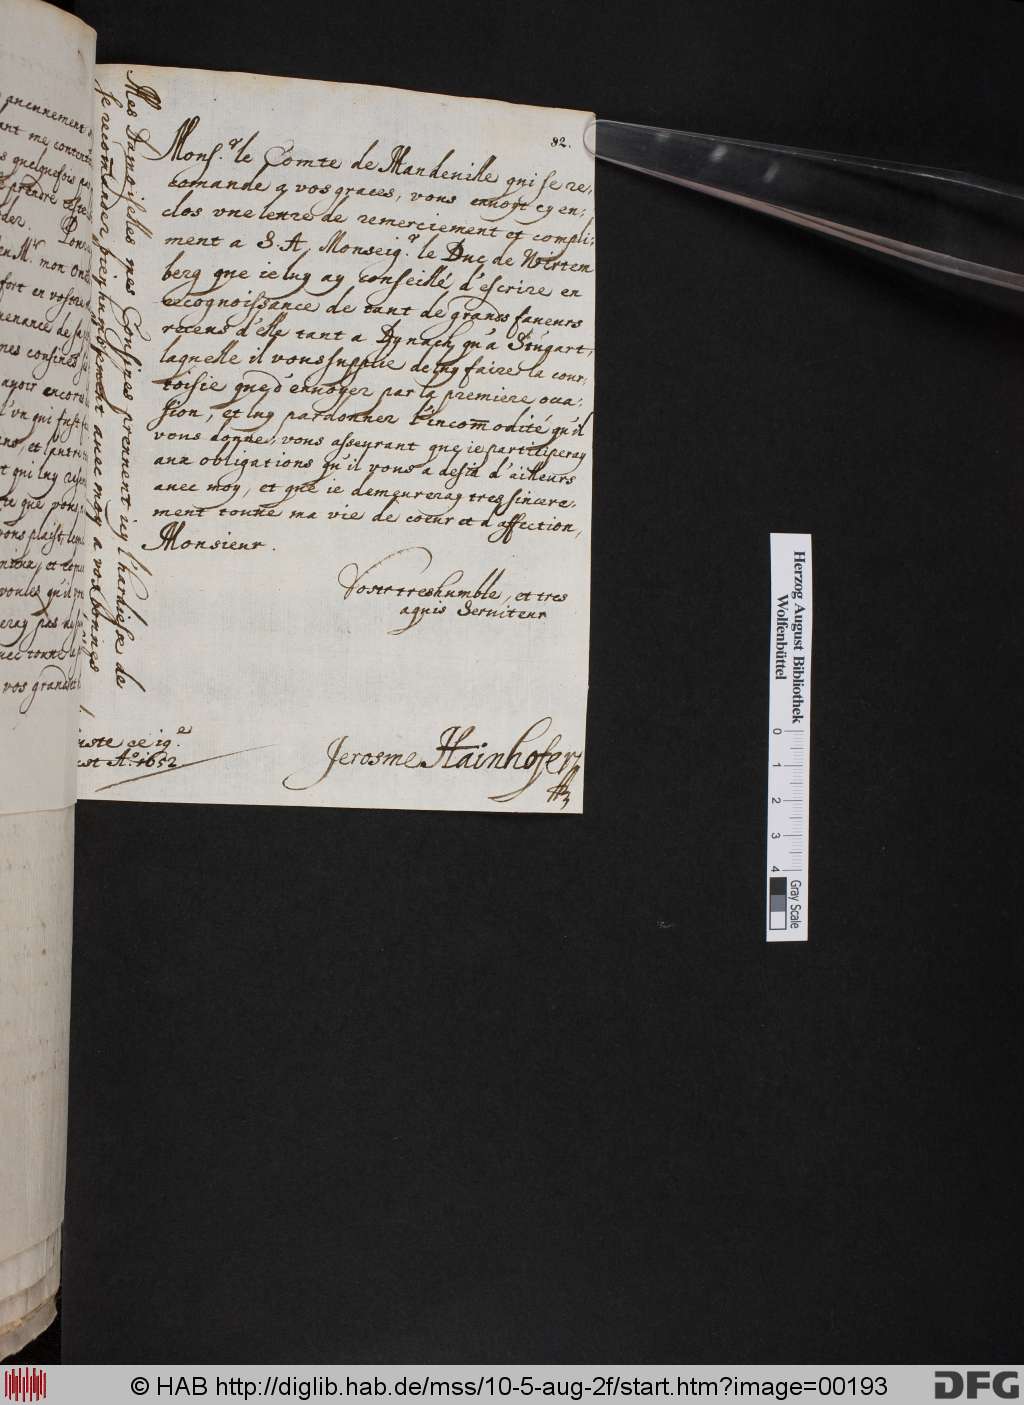 82.
Mons.r le Comte de Mandeuille qui se re,
comande a vos graces, vous enuoye cy en,
clos vne lettre de remerciement et compli,
ment a S. A. Monseig.r le Duc de Wirtem
berg que ie luy ay conseillé d'escrire en
recognoissance de tant de grands faueurs
receus d'elle tant a Dynach qu'a Stugart,
laquelle il vous supplie de luy faire la cour,
toisie que d'enuoyer par la premiere occa,
sion, et luy pardonner l'incomodité qu'il
vous donne, vous asseurant que ie participeray
aux obligations qu'il vous a desia d'ailleurs
auec moy, et que ie demeureray tres sincere,
ment toutte ma vie de coeur et d'affection,
Monsieur.
Vostr treshumble, et tres
aquis Seruiteur
Jerosme Hainhofer
ce 19.e
A.o 1652.
Mes Damoiselles mes Cousines prennent icy l'hardiesse de
se recomander bien humblement auec moy a vos bonnes
pucunnement
ant me contente
s quelquefois
prendre
mon
fort en vostre
mes cousines
auoir encore
l'vn qui fust
et l'autre
t qui luy
te que vous
vous plaist,
voules qu'il
eray pas
uec toutte
vos grand
Herzog August Bibliothek
Wolfenbüttel
0 1 2 3 4
Gray Scale
© HAB http://diglib.hab.de/mss/10-5-aug-2f/start.htm?image=00193
DFG